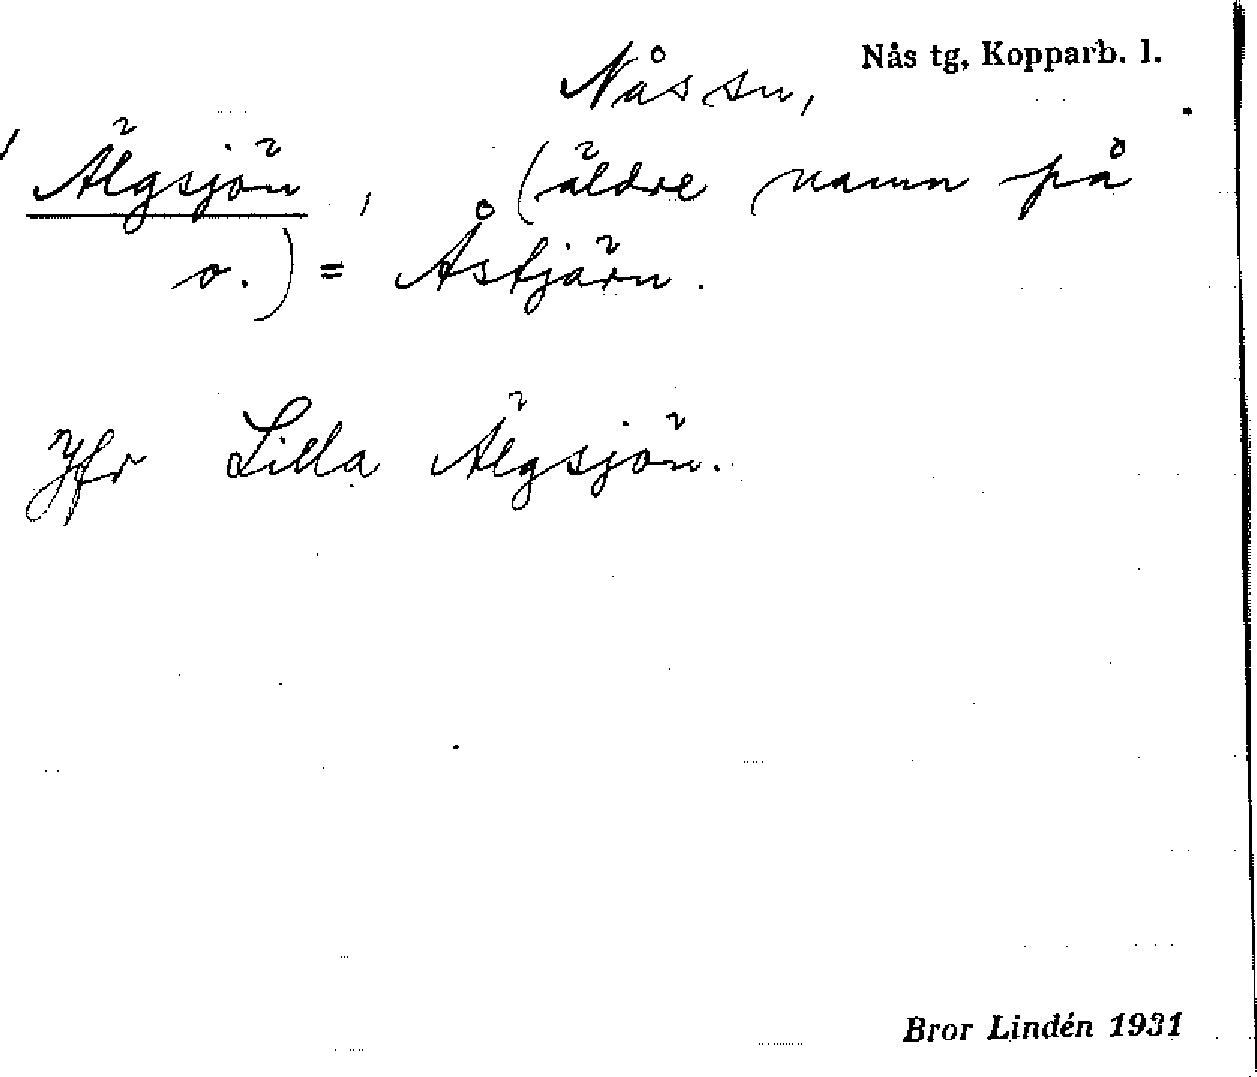 Nås tg, Kopparb. l.
Nås sn,
Älgsjön , (äldre namn på
o.) = Åstjärn.
Jfr Lilla Älgsjön.
Bror Lindén 1931